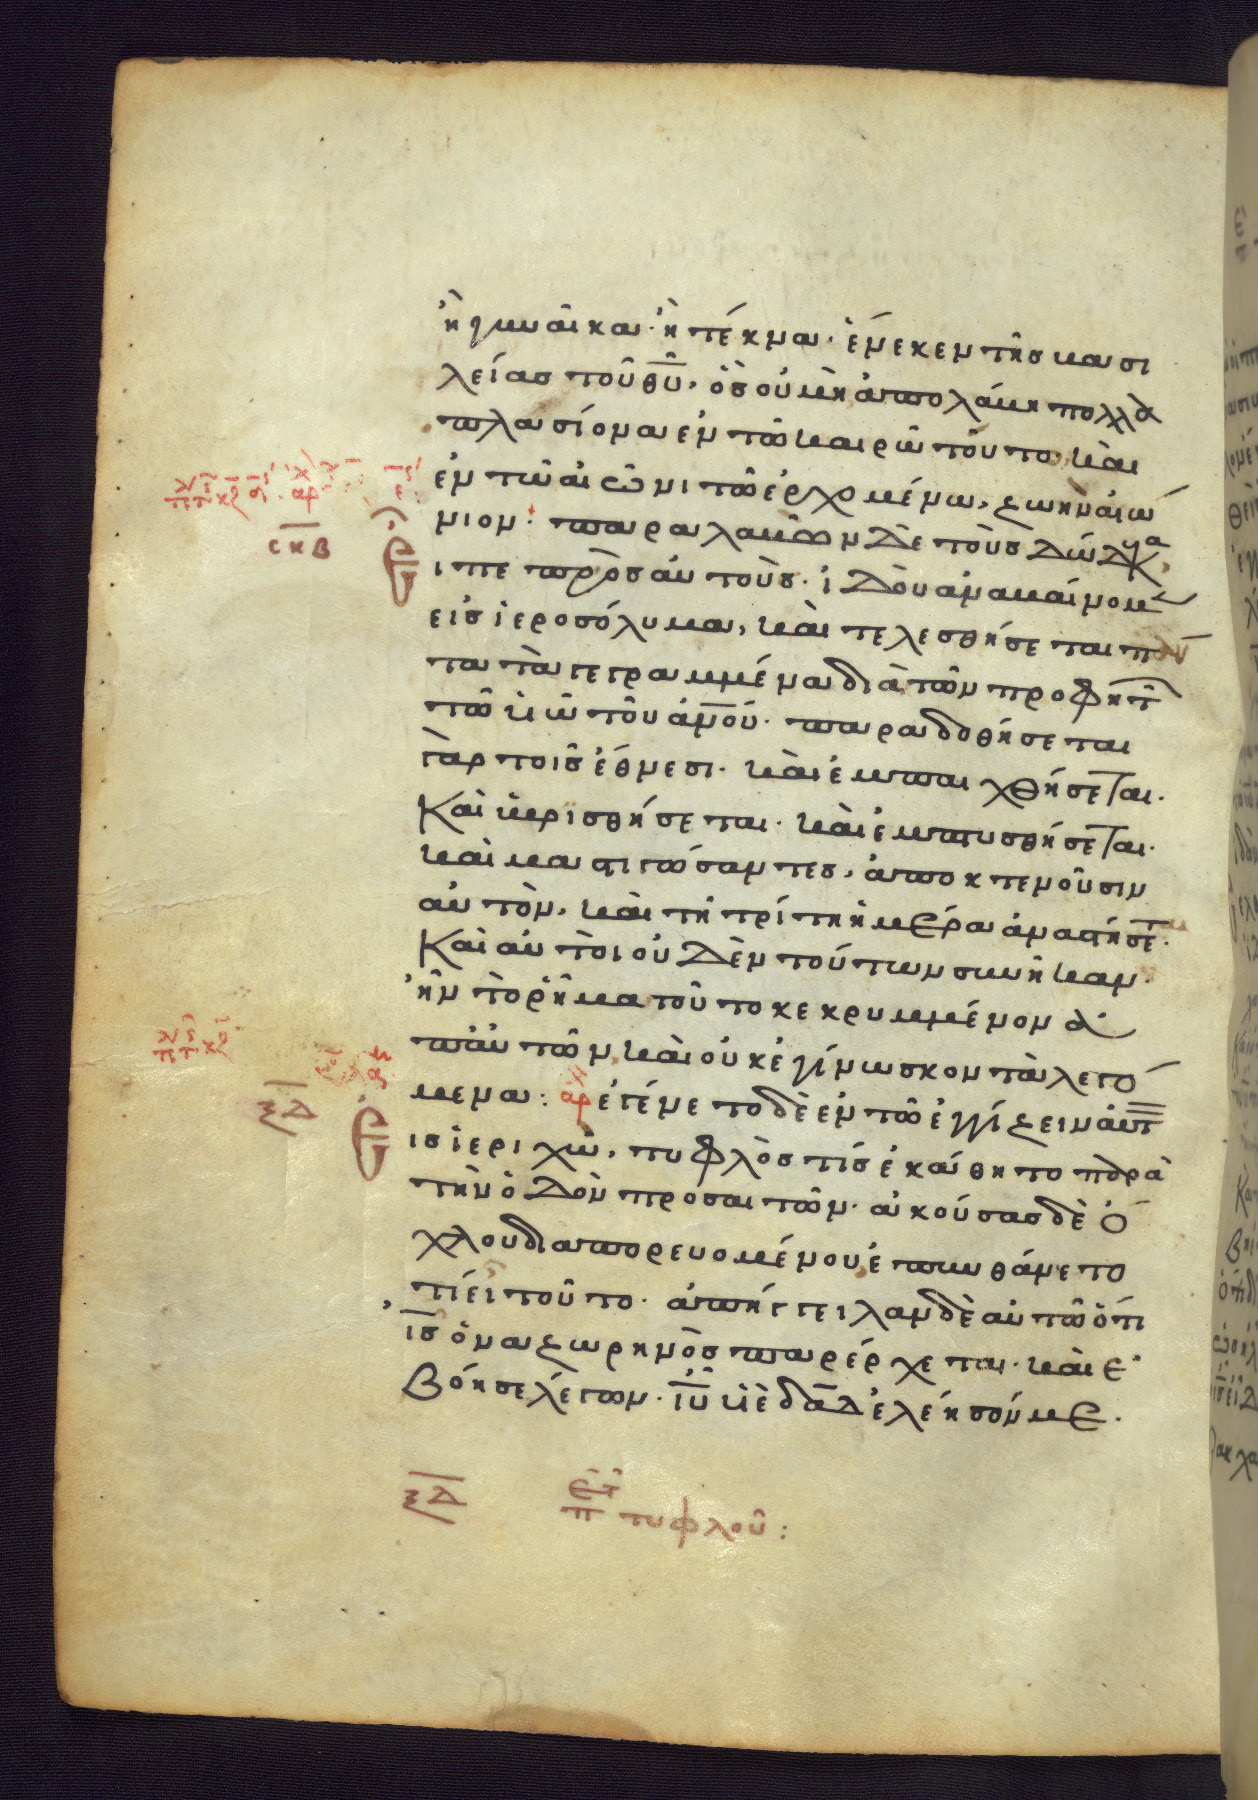 ἢ γυναῖκα· ἢ τέκνα· ἕνεκεν τῆς βασι
λείας τοῦ θ̅υ̅, ὃς οὐ μὴ ἀπολάβη πολλα
πλασίονα ἐν τῶ καιρῶ τούτω καὶ
ἐν τῶ αἰῶνι τῶ ἐρχομένω, ζωὴν αἰώ
νιον: παραλαβὼν δὲ τοὺς δώδκα
ιπε πρὸς αὐτούς· ἰδοὺ ἀναβαίνομε
εἰς ἱεροσόλυμα, καὶ τελεσθήσεται πάν
τα τὰ γεγραμμένα διὰ τῶν προφητ
τῶ υἱῶ τοῦ ἀ̅ν̅ο̅ύ̅· παραδοθήσεται
γὰρ τοῖς ἔθνεσι· καὶ ἐμπαιχθήσεται·
Καὶ ὑβρισθήσεται· καὶ ἐμπτυσθήσεται·
καὶ μαστιγώσαντες, ἀποκτενοῦσιν
αὐτὸν, καὶ τῆ τρίτη ἡμέρα ἀναστήσετ·
Καὶ αὐτοὶ οὐδὲν τούτων συνῆκαν·
ἦν τὸ ῥῆμα τοῦτο κεκρυμμένον ἀ
π' αὐτῶν καὶ οὐκ ἐγίνωσκον τὰ λεγό
μενα: ἀρχ ἐγένετο δὲ ἐν τῶ ἐγγίζειν αὐτ
ις ἱεριχὼ, τυφλός τίς ἐκάθητο παρὰ
τὴν ὁδὸν προσαιτῶν· ἀκούσας δὲ ὄ
χλου διαπορευομένου ἐπυνθάνετο
τί εἴ τοῦτο· ἀπήγγειλαν δὲ αὐτῶ ὅτι
ι̅ς̅ ὁ ναζωρηνὸς παρέρχεται· καὶ ἐ
βόησε λέγων· ι̅υ̅ υἱὲ δ̅α̅δ̅ ἐλέησόν με·
σκβ
ξδ
ξδ π τυφλοῦ: